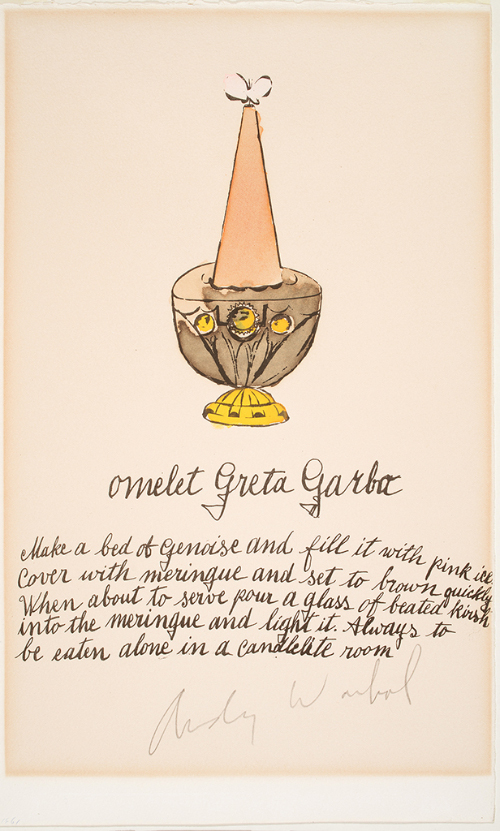 omelet Greta Garba
Make a bed of Genoise and fill it with pink ice
Cover with meringue and set to brown quickly
When about to serve pour a glass of heated kirsh
into the meringue and light it. Always to
be eaten alone in a candlelite room
Andy Warhol